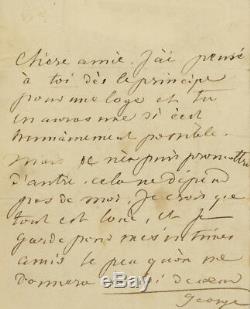 Chère amie. J'ai pensé
à toi dès le principe
pour une loge et tu
en auras une si c'est
humainement possible.
mais je n'en puis promettre
d'autre. cela ne dépend
pas de moi. Je crois que
tout est loué, et je
garde pour mes intimes
amis le peu qu'on me
donnera à toi de cœur
George